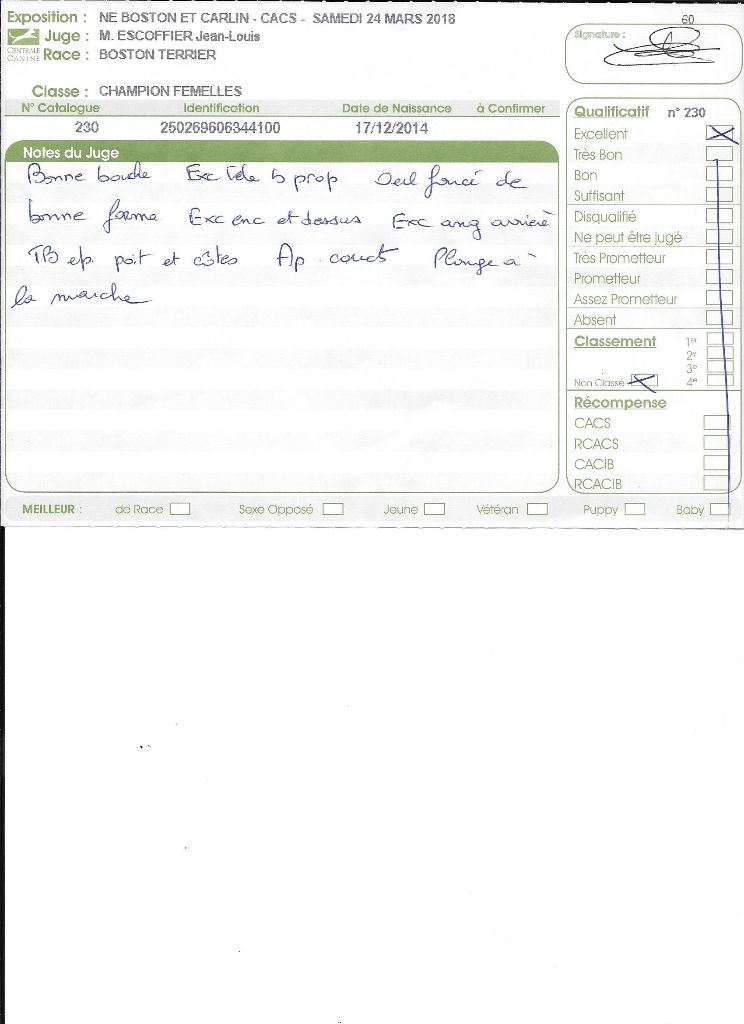 Exposition : NE BOSTON ET CARLIN - CACS - SAMEDI 24 MARS 2018
Juge : M. ESCOFFIER Jean-Louis
CENTRALE CANINE
Race : BOSTON TERRIER
60
Signature :
Classe : CHAMPION FEMELLES
N° Catalogue Identification Date de Naissance à Confirmer
230 250269606344100 17/12/2014
Notes du Juge
Bonne bouche Exc tête b prop Oeil foncé de
bonne forme Exc enc et dessus Exc ang arrière
TB ep. poit et côtes Ap. correct Plonge à
la marche
Qualificatif n° 230
Excellent
Très Bon
Bon
Suffisant
Disqualifié
Ne peut être jugé
Très Prometteur
Prometteur
Assez Prometteur
Absent
Classement 1er
2e
3e
Non Classé 4e
Récompense
CACS
RCACS
CACIB
RCACIB
MEILLEUR : de Race Sexe Opposé Jeune Vétéran Puppy Baby